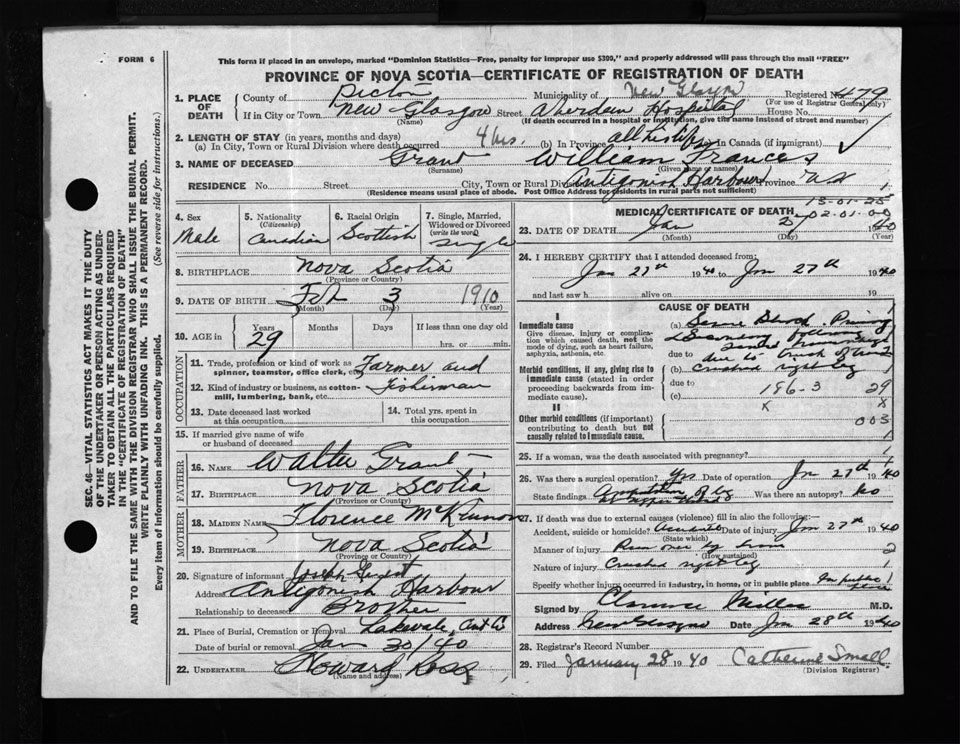 FORM 6
This form if placed in an envelope, marked "Dominion Statistics—Free, penalty for improper use $300," and properly addressed will pass through the mail "FREE"
PROVINCE OF NOVA SCOTIA—CERTIFICATE OF REGISTRATION OF DEATH
1. PLACE OF DEATH County of Pictou Municipality of New Glasgow Registered No. 479
(For use of Registrar General only)
If in City or Town New Glasgow (Name) Street Aberdeen Hospital House No.
(If death occurred in a hospital or institution, give the name instead of street and number)
2. LENGTH OF STAY (in years, months and days)
(a) In City, Town or Rural Division where death occurred 4 hrs. (b) In Province all his life (c) In Canada (if immigrant)
3. NAME OF DECEASED Grant William Frances
(Surname) (Given name or names)
RESIDENCE No. Street City, Town or Rural Division Antigonish Harbour Province N S 1
(Residence means usual place of abode. Post Office Address for residents in rural parts not sufficient)
4. Sex Male
5. Nationality (Citizenship) Canadian
6. Racial Origin Scottish
7. Single, Married, Widowed or Divorced (write the word) Single
8. BIRTHPLACE Nova Scotia
(Province or Country)
9. DATE OF BIRTH Feb 3 1910
(Month) (Day) (Year)
10. AGE in Years 29 Months Days If less than one day old
hrs. or min.
OCCUPATION
11. Trade, profession or kind of work as spinner, teamster, office clerk, etc. Farmer and
12. Kind of industry or business, as cotton-mill, lumbering, bank, etc. Fisherman
13. Date deceased last worked at this occupation
14. Total yrs. spent in this occupation
15. If married give name of wife or husband of deceased
FATHER
16. NAME Walter Grant
17. BIRTHPLACE Nova Scotia
(Province or Country)
MOTHER
18. MAIDEN NAME Florence McKinnon
19. BIRTHPLACE Nova Scotia
(Province or Country)
20. Signature of informant Joseph Grant
Address Antigonish Harbour
Relationship to deceased Brother
21. Place of Burial, Cremation or Removal Lakevale,
Date of burial or removal Jan 30/40
22. UNDERTAKER Howard Ross
(Name and address)
MEDICAL CERTIFICATE OF DEATH
13-01-25
02-01-00
23. DATE OF DEATH Jan 27 1940
(Month) (Day) (Year)
24. I HEREBY CERTIFY that I attended deceased from:
Jan 27th 1940 to Jan 27th 1940
and last saw h alive on 19
CAUSE OF DEATH
I
Immediate cause
Give disease, injury or complication which caused death, not the mode of dying, such as heart failure, asphyxia, asthenia, etc
Morbid conditions, if any, giving rise to immediate cause (stated in order proceeding backwards from immediate cause).
II
Other morbid conditions (if important) contributing to death but not causally related to immediate cause.
(a)
due to
(b) Crushed right leg
due to
(c) 196-3 29
x x
003
1
25. If a woman, was the death associated with pregnancy?
26. Was there a surgical operation? Yes Date of operation Jan 27th 1940
State findings Amputation of leg Was there an autopsy? No
27. If death was due to external causes (violence) fill in also the following:—
Accident, suicide or homicide? Accident Date of injury Jan 27th 1940
(State which)
Manner of injury Run over by 2
(How sustained)
Nature of injury Crushed right leg 1
Specify whether injury occurred in industry, in home, or in public place In public place 1
Signed by Clarence Miller M.D.
Address New Glasgow Date Jan 28th 1940
28. Registrar's Record Number
29. Filed January 28 1940 Catherine Small
(Division Registrar)
SEC. 46—VITAL STATISTICS ACT MAKES IT THE DUTY
OF THE UNDERTAKER OR PERSON ACTING AS UNDER-
TAKER TO OBTAIN ALL THE PARTICULARS REQUIRED
IN THE "CERTIFICATE OF REGISTRATION OF DEATH"
AND TO FILE THE SAME WITH THE DIVISION REGISTRAR WHO SHALL ISSUE THE BURIAL PERMIT.
WRITE PLAINLY WITH UNFADING INK. THIS IS A PERMANENT RECORD.
Every item of information should be carefully supplied. (See reverse side for instructions.)